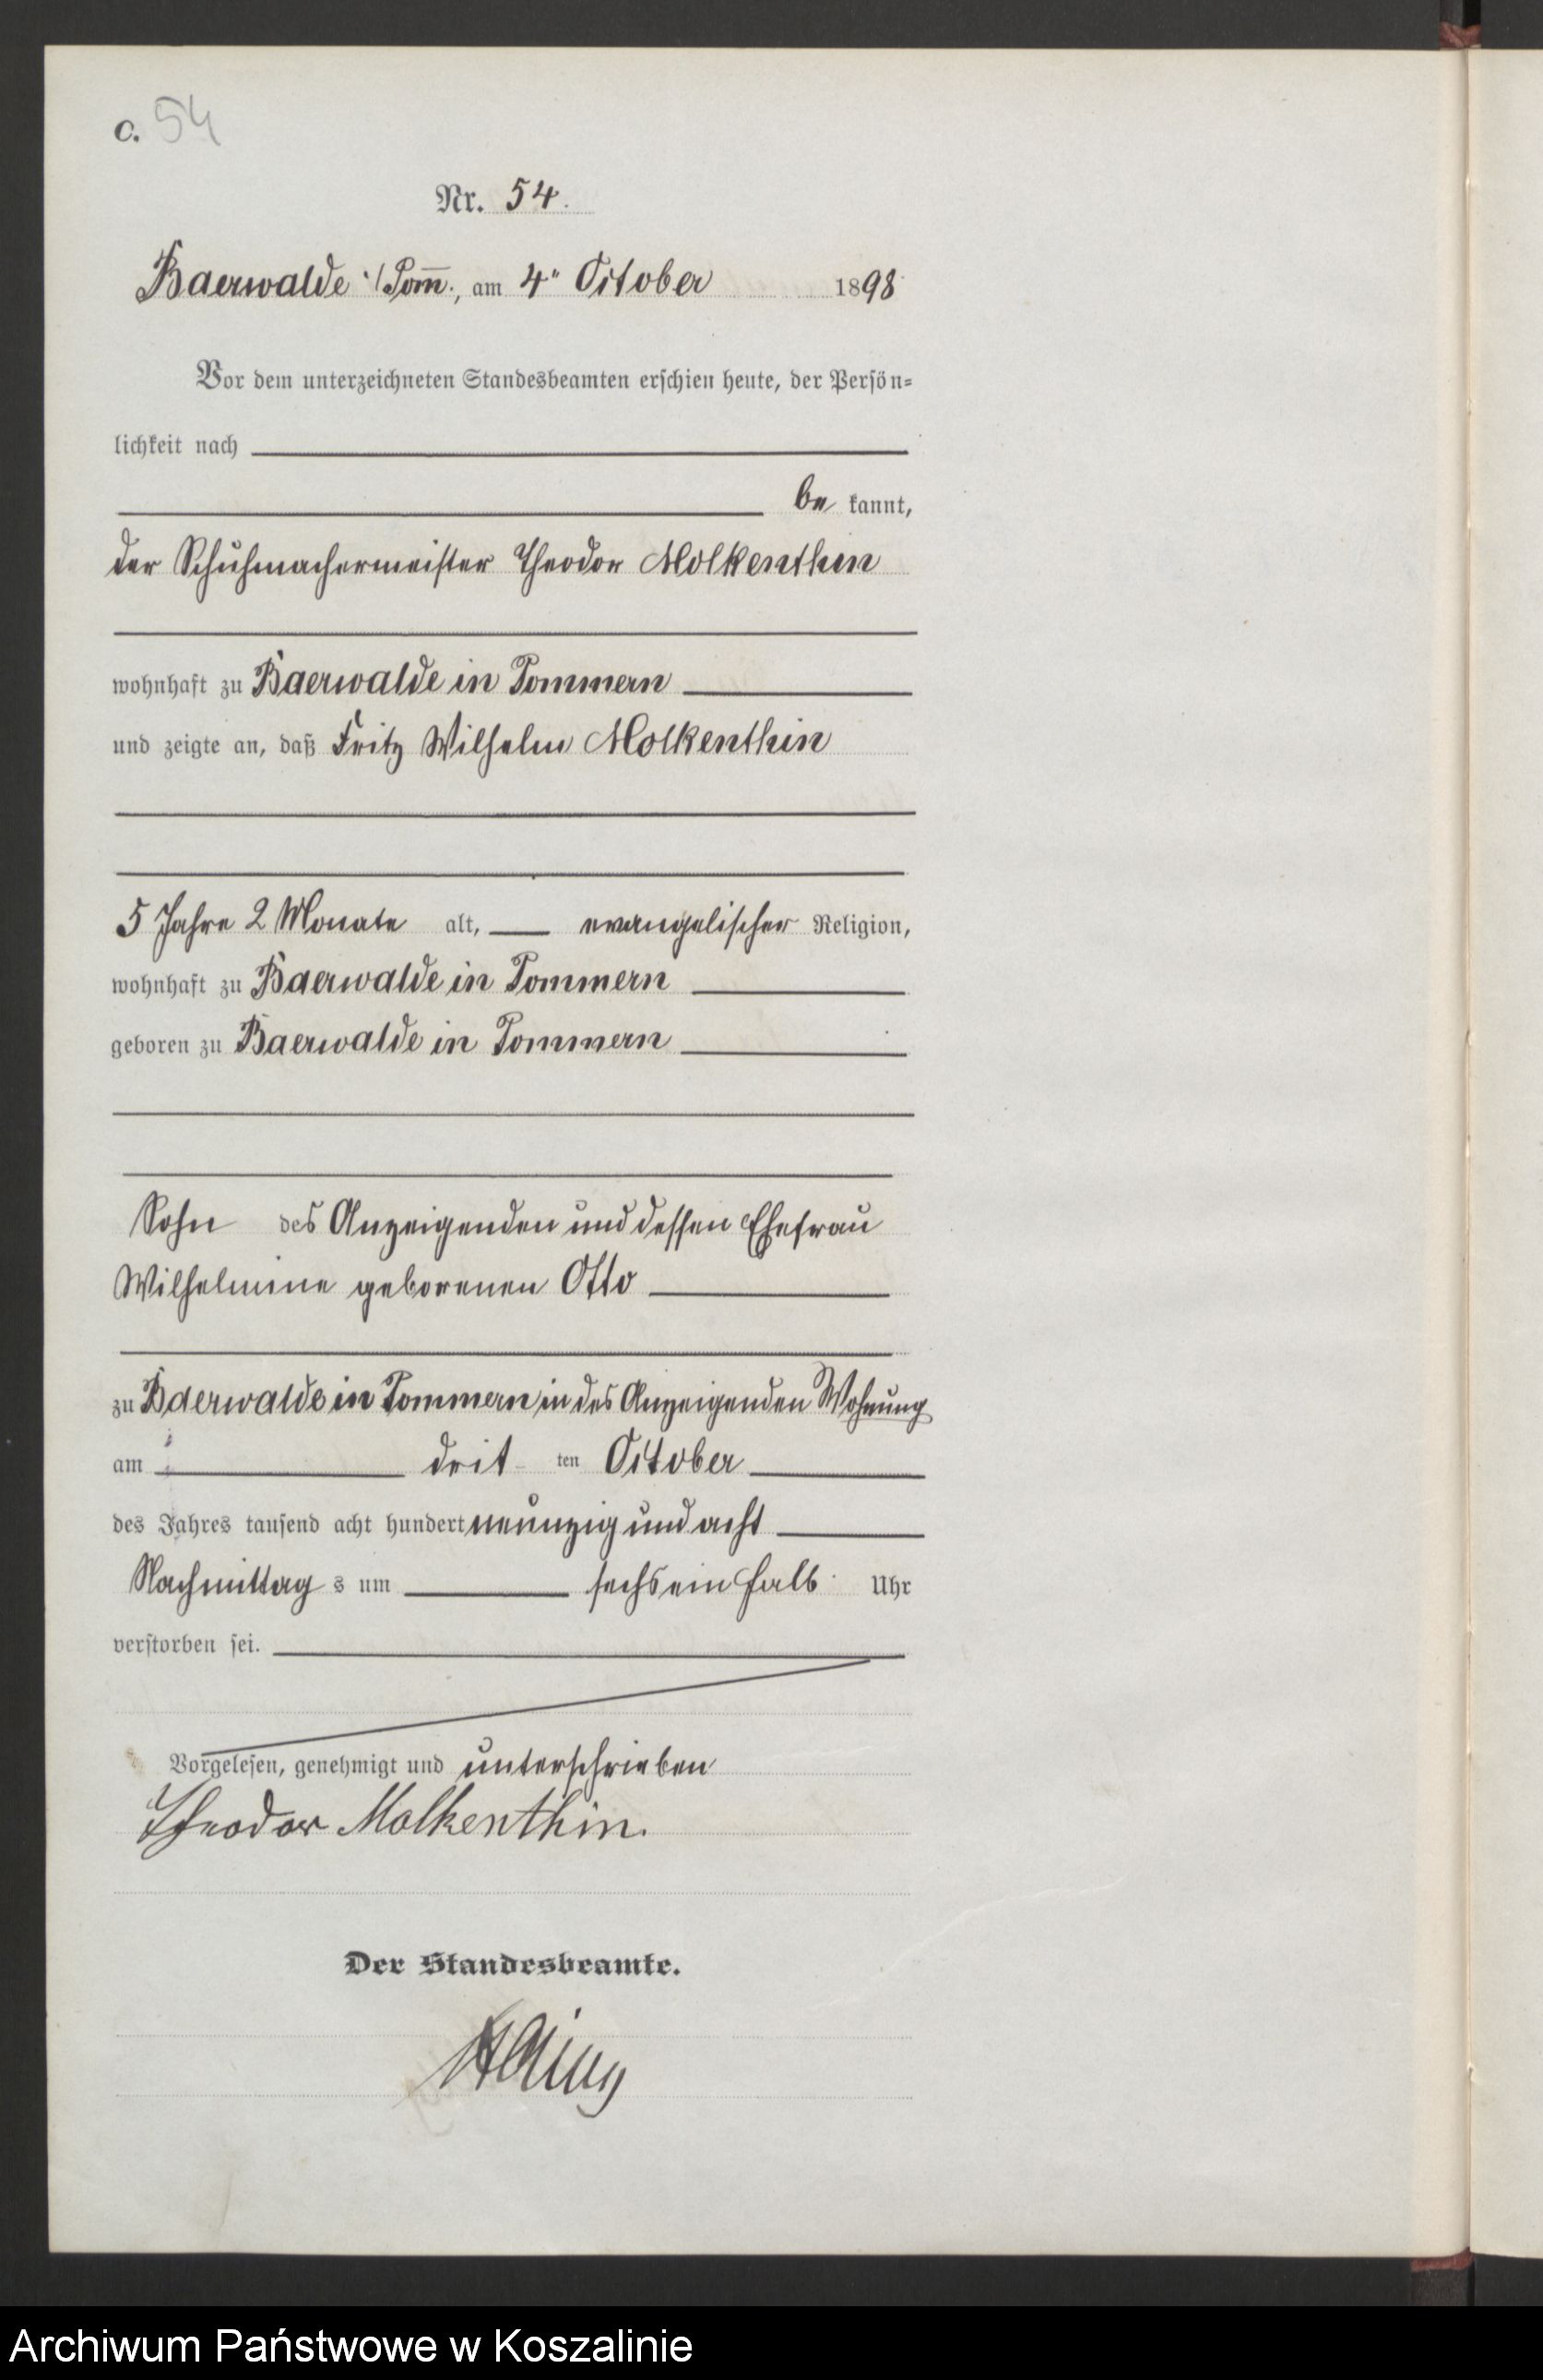 C. 54
Nr. 54.
Baerwalde i/Pom̅., am 4" October 1898
Vor dem unterzeichneten Standesbeamten erschien heute, der Persön-
lichkeit nach
be kannt,
der Schuhmachermeister Theodor Molkenthin
wohnhaft zu Baerwalde in Pommern
und zeigte an, daß Fritz Wilhelm Molkenthin
5 Jahre 2 Monate alt, evangelischer Religion,
wohnhaft zu Baerwalde in Pommern
geboren zu Baerwalde in Pommern
Sohn des Anzeigenden und dessen Ehefrau
Wilhelmine geborenen Otto
zu Baerwalde in Pommern in des Anzeigenden Wohnung
am drit ten October
des Jahres tausend acht hundert neunzig und acht
Nachmittag s um sechs ein halb Uhr
verstorben sei.
Vorgelesen, genehmigt und unterschrieben
Theodor Molkenthin.
Der Standesbeamte.
Archiwum Państwowe w Koszalinie